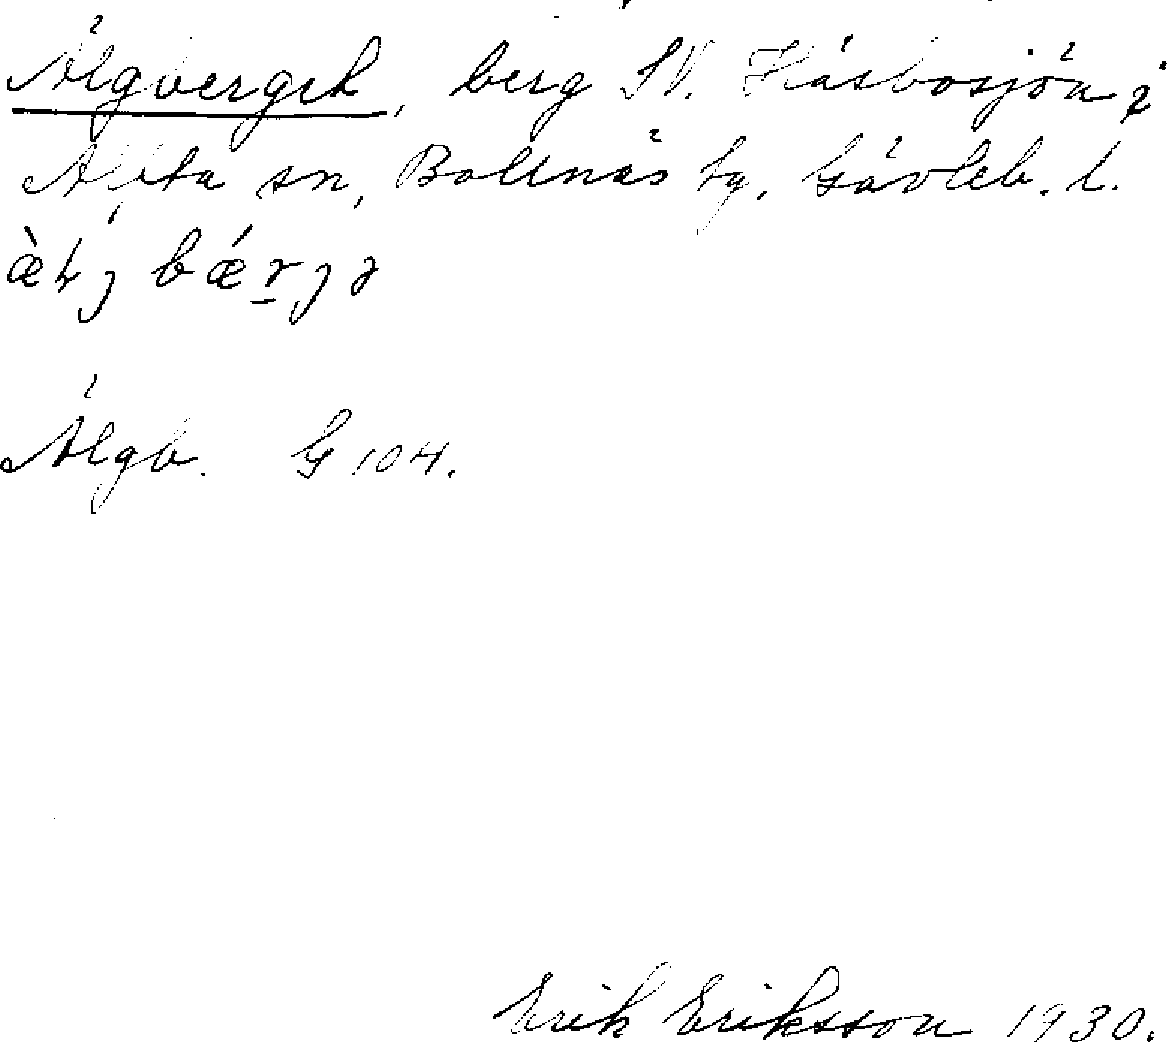 Älgberget, berg SV. Häsbosjön i
Alfta sn, Bollnäs tg. Gävleb. l.
Älgb. G 104.
Erik Eriksson 1930.